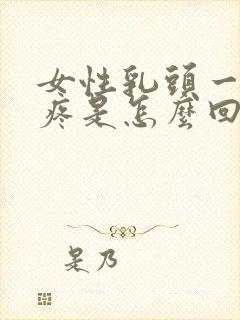 女性乳頭一
疼是怎麼回
是乃